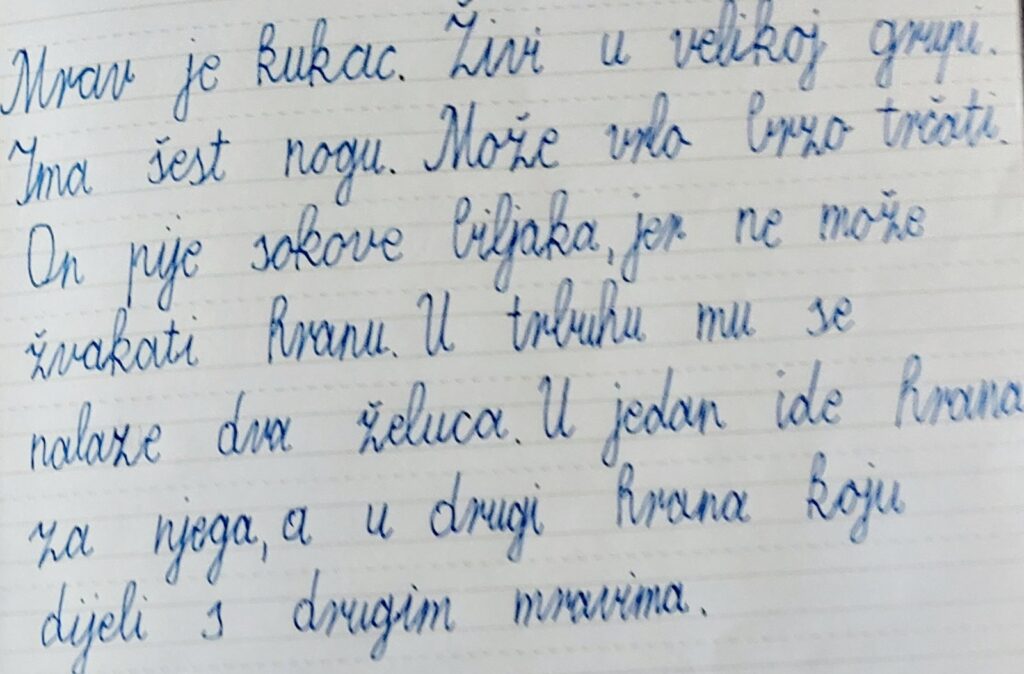 Mrav je kukac. Živi u velikoj grupi.
Ima šest nogu. Može vrlo brzo trčati.
On pije sokove biljaka, jer ne može
žvakati hranu. U trbuhu mu se
nalaze dva želuca. U jedan ide hrana
za njega, a u drugi hrana koju
dijeli s drugim mravima.